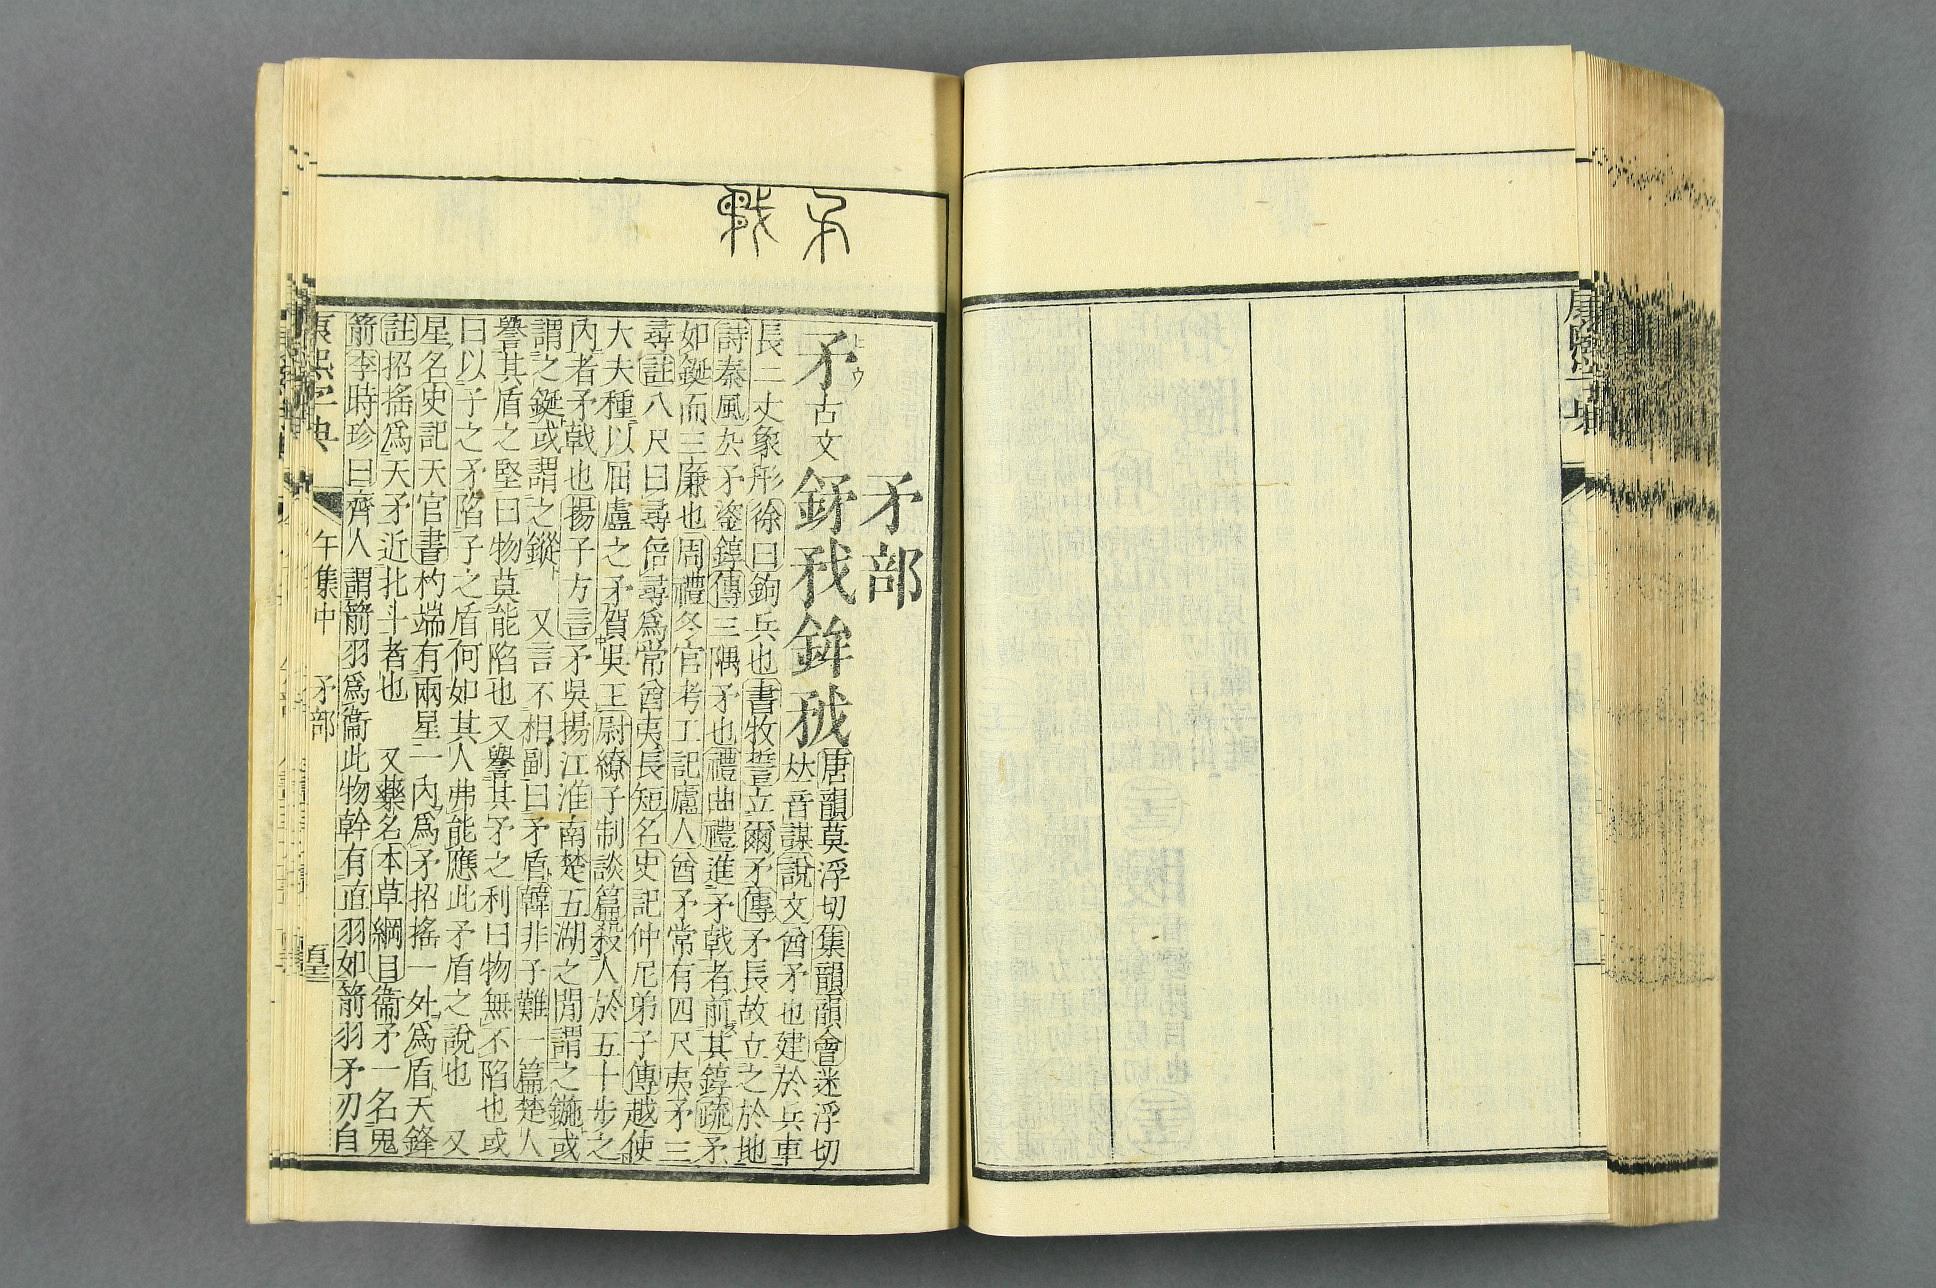 康熙字典
矛
矛部
矛 ヒウ 古文 鉾
唐韻莫浮切集韻韻會迷浮切
𠀤音謀說文酋矛也建於兵車
長二丈象形徐曰鉤兵也書牧誓立爾矛傳矛長故立之於地
詩秦風厹矛鋈錞傳三隅矛也禮曲禮進矛戟者前其錞疏矛
如鋋而三廉也周禮冬官考工記廬人酋矛常有四尺夷矛三
尋註八尺曰尋倍尋爲常酋夷長短名史記仲尼弟子傳越使
大夫種以屈盧之矛賀吳王尉繚子制談篇殺人於五十步之
內者矛戟也揚子方言矛吳揚江淮南楚五湖之閒謂之鍦或
謂之鋋或謂之鏦 又言不相副曰矛盾韓非子難一篇楚人
譽其盾之堅曰物莫能陷也又譽其矛之利曰物無不陷也或
曰以子之矛陷子之盾何如其人弗能應此矛盾之說也 又
星名史記天官書杓端有兩星一內爲矛招搖一外爲盾天鋒
註招搖爲天矛近北斗者也 又藥名本草綱目衞矛一名鬼
箭李時珍曰齊人謂箭羽爲衞此物幹有直羽如箭羽矛刃自
康熙字典 午集中 矛部